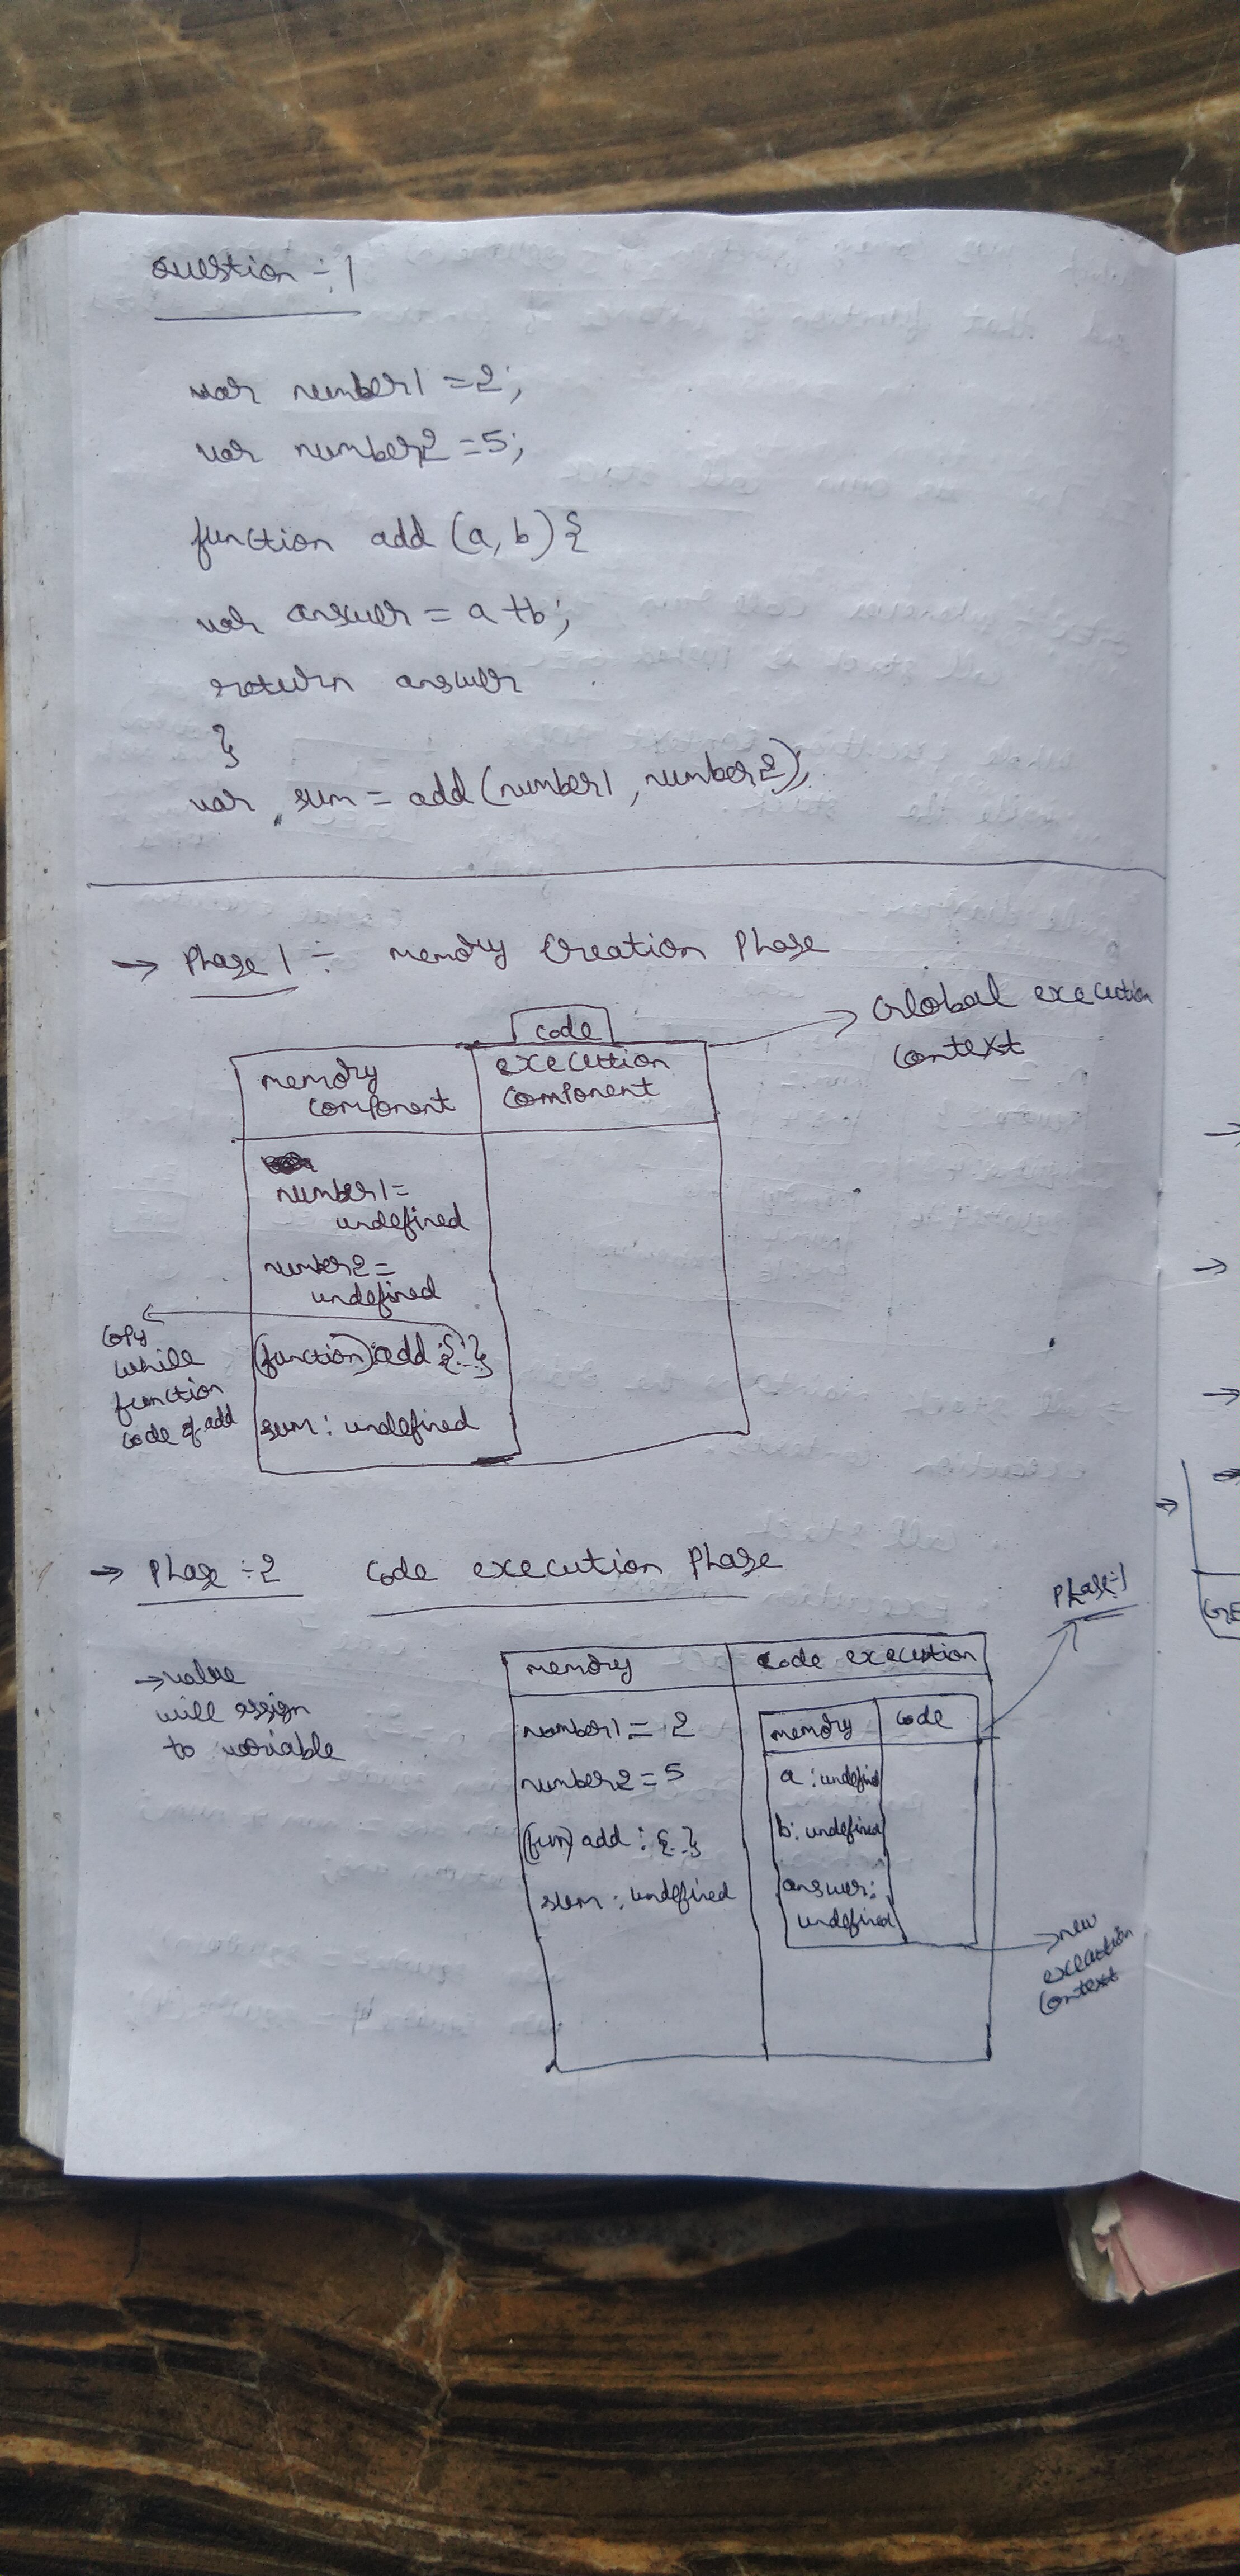 Question ÷ 1
var number1 = 2;
var number2 = 5;
function add (a, b) {
var answer = a + b;
return answer
}
var sum = add (number1, number2);
→ Phase 1 ÷ memory Creation Phase
code
→ Global execution
context
memory
component
execution
component
number1 =
undefined
number2 =
undefined
(function) add : {..}
sum : undefined
copy
while
function
code of add
→ Phase ÷ 2 Code execution Phase
→ value
will assign
to variable
Phase-1
memory
code execution
number1 = 2
number2 = 5
(fun) add : {..}
sum : undefined
memory
code
a : undefined
b : undefined
answer :
undefined
→ new
execution
context